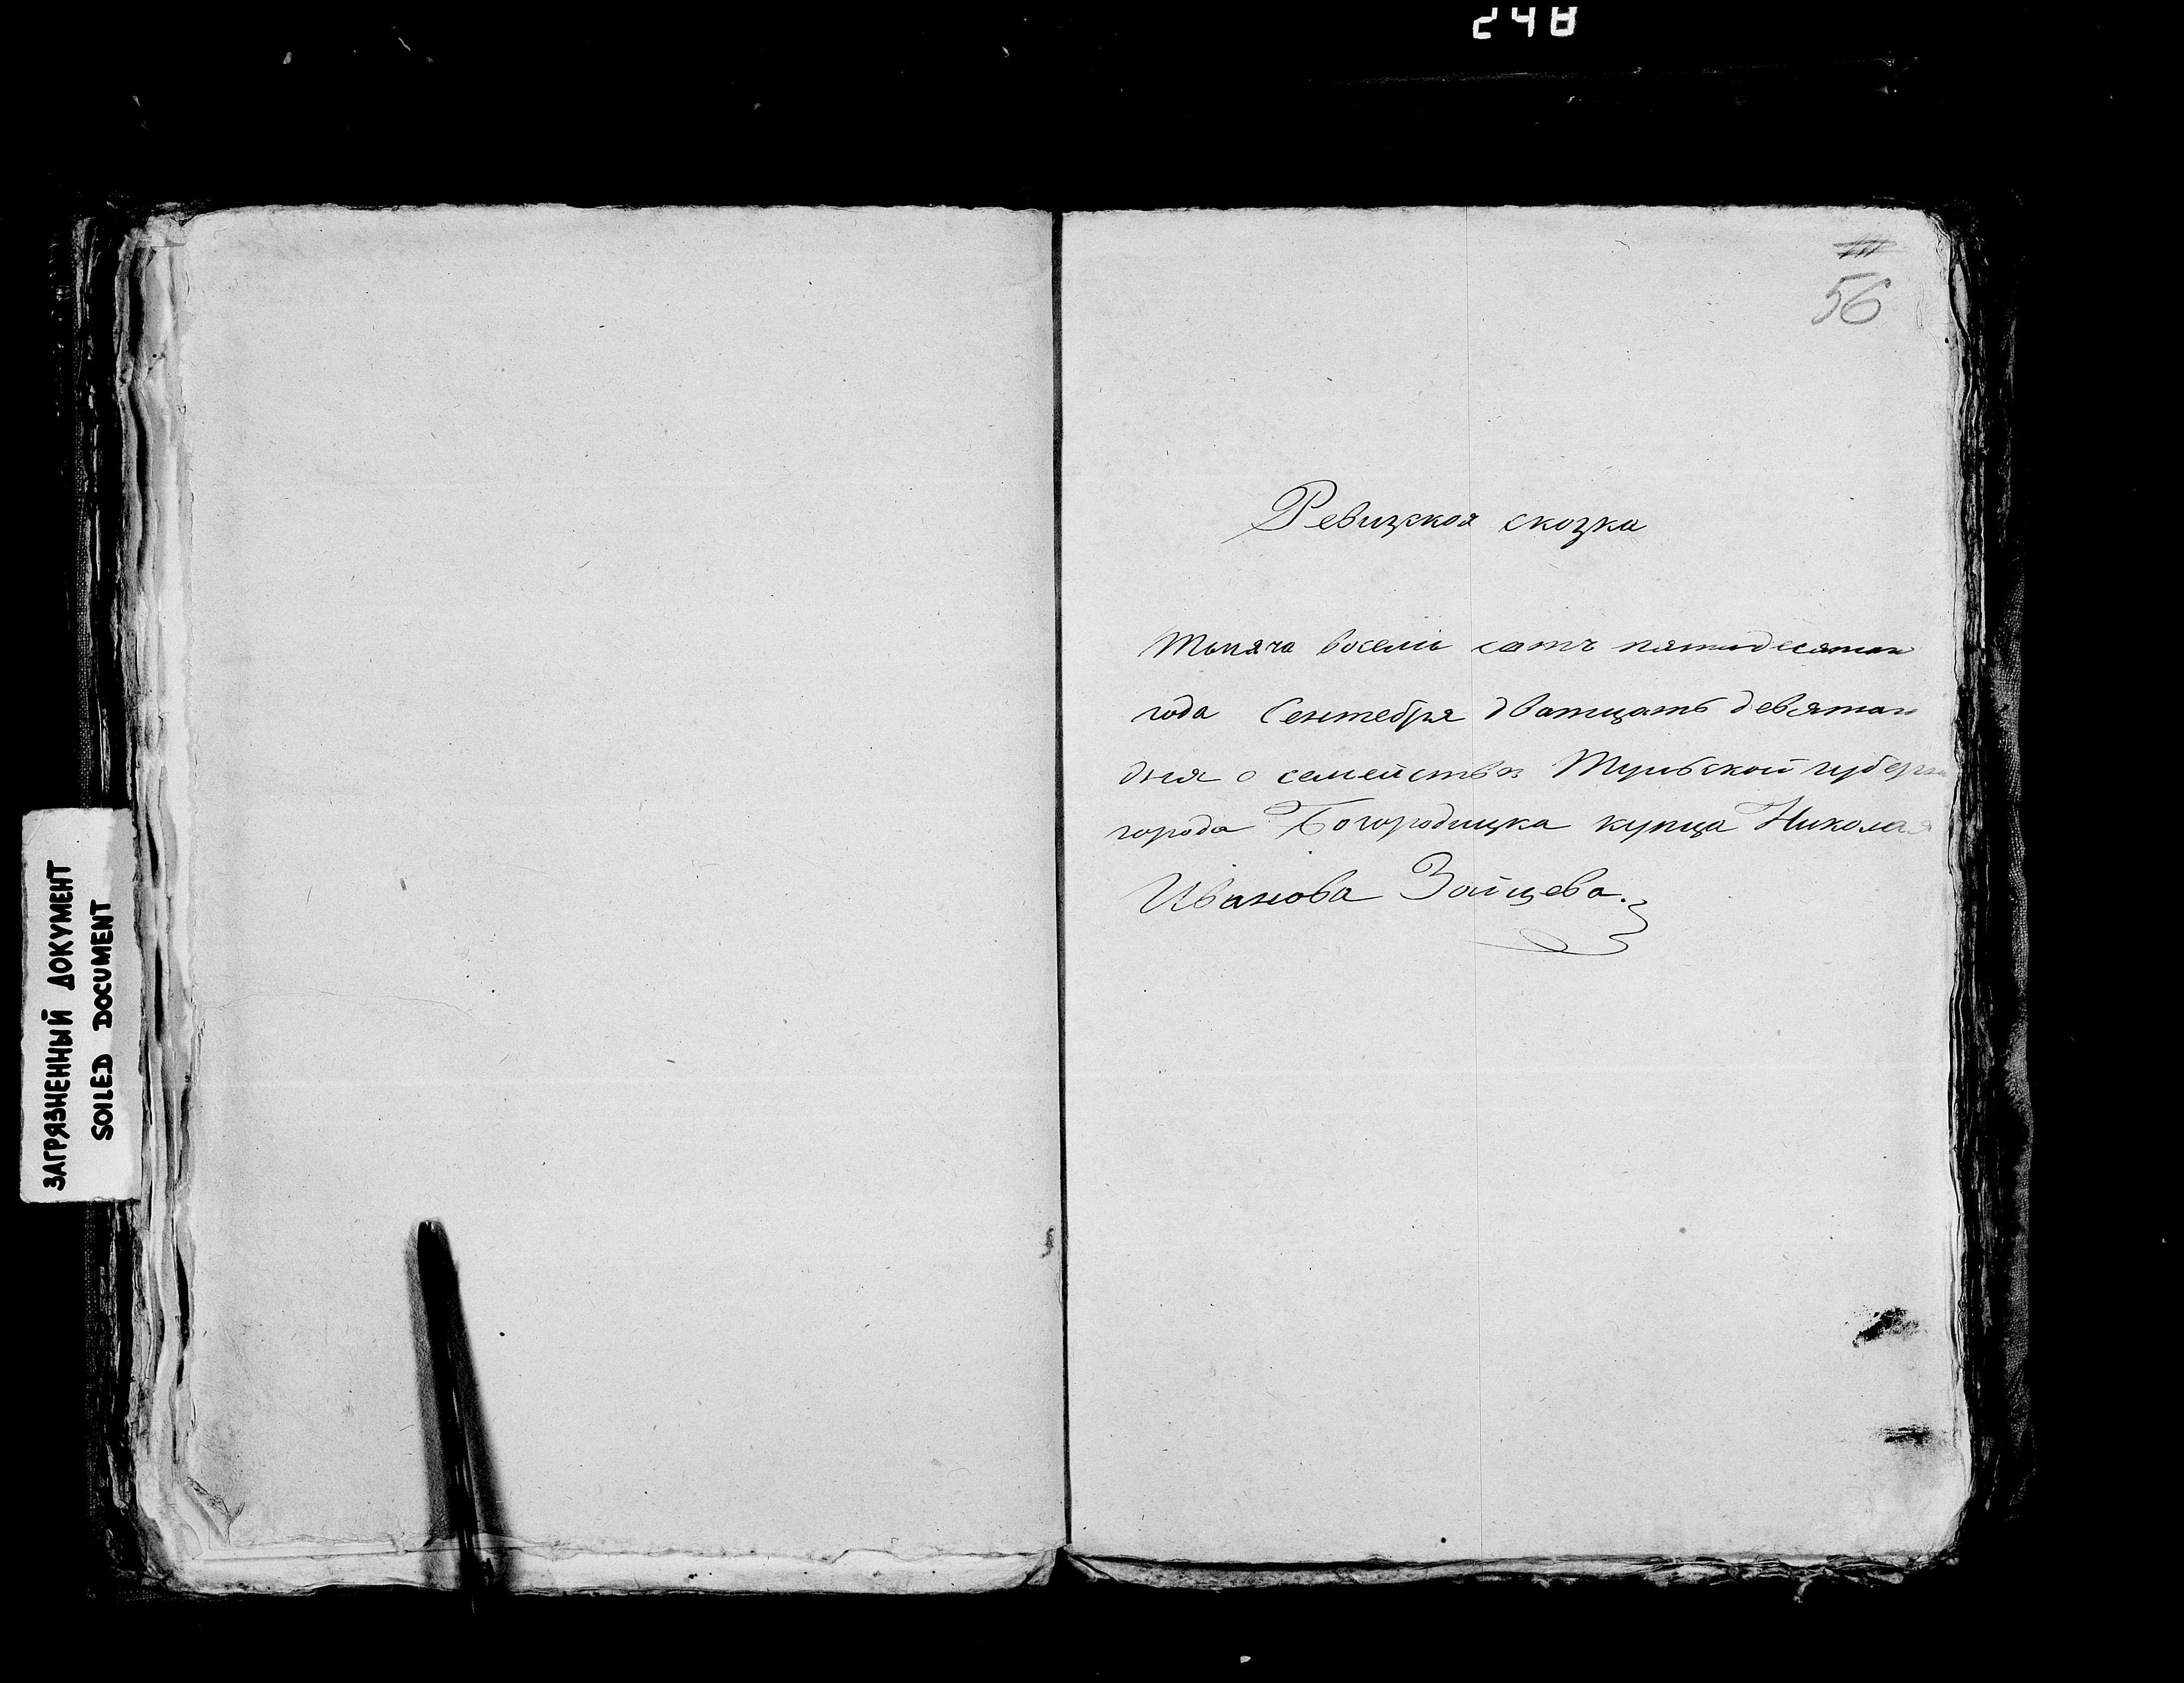 248
56
Ревизская сказка
Тысяча восемь сотъ пятидесятаго
года Сентебря дватцать девятаго
дня о семействѣ Тульской губерн
города Богородицка купца Николая
Иванова Зайцева.
ЗАГРЯЗНЕННЫЙ ДОКУМЕНТ
SOILED DOCUMENT